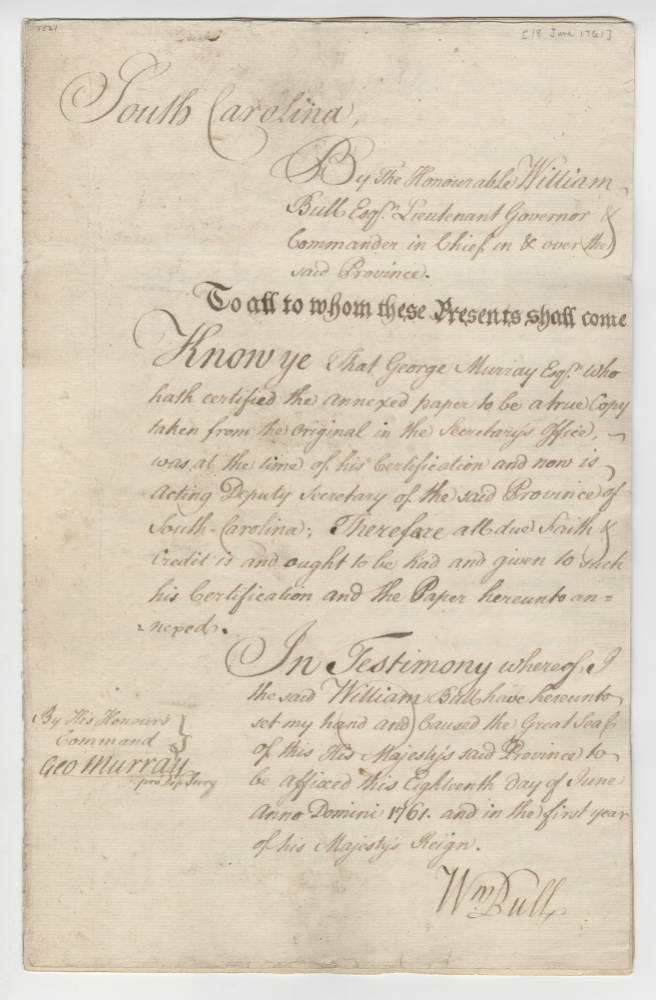 [18 June 1761]
South Carolina,
By The Honourable William
Bull Esqr. Lieutenant Governor &
Commander in Chief in & over the
said Province.
To all to whom these Presents shall come
Know ye That George Murray Esqr. who
hath certified the annexed paper to be a true Copy
taken from the original in the Secretary's Office,
was at the time of his Certification and now is
acting Deputy Secretary of the said Province of
South-Carolina; Therefore all due Faith &
Credit is and ought to be had and given to such
his Certification and the Paper hereunto an=
=nexed.
In Testimony whereof I
the said William Bull have hereunto
set my hand and Caused the Great Seal
of this His Majesty's said Province to
be affixed this Eighteenth day of June
Anno Domini 1761. and in the first year
of his Majesty's Reign.
By His Honours
Command
Geo Murray
pro Dep Secry
Wm Bull